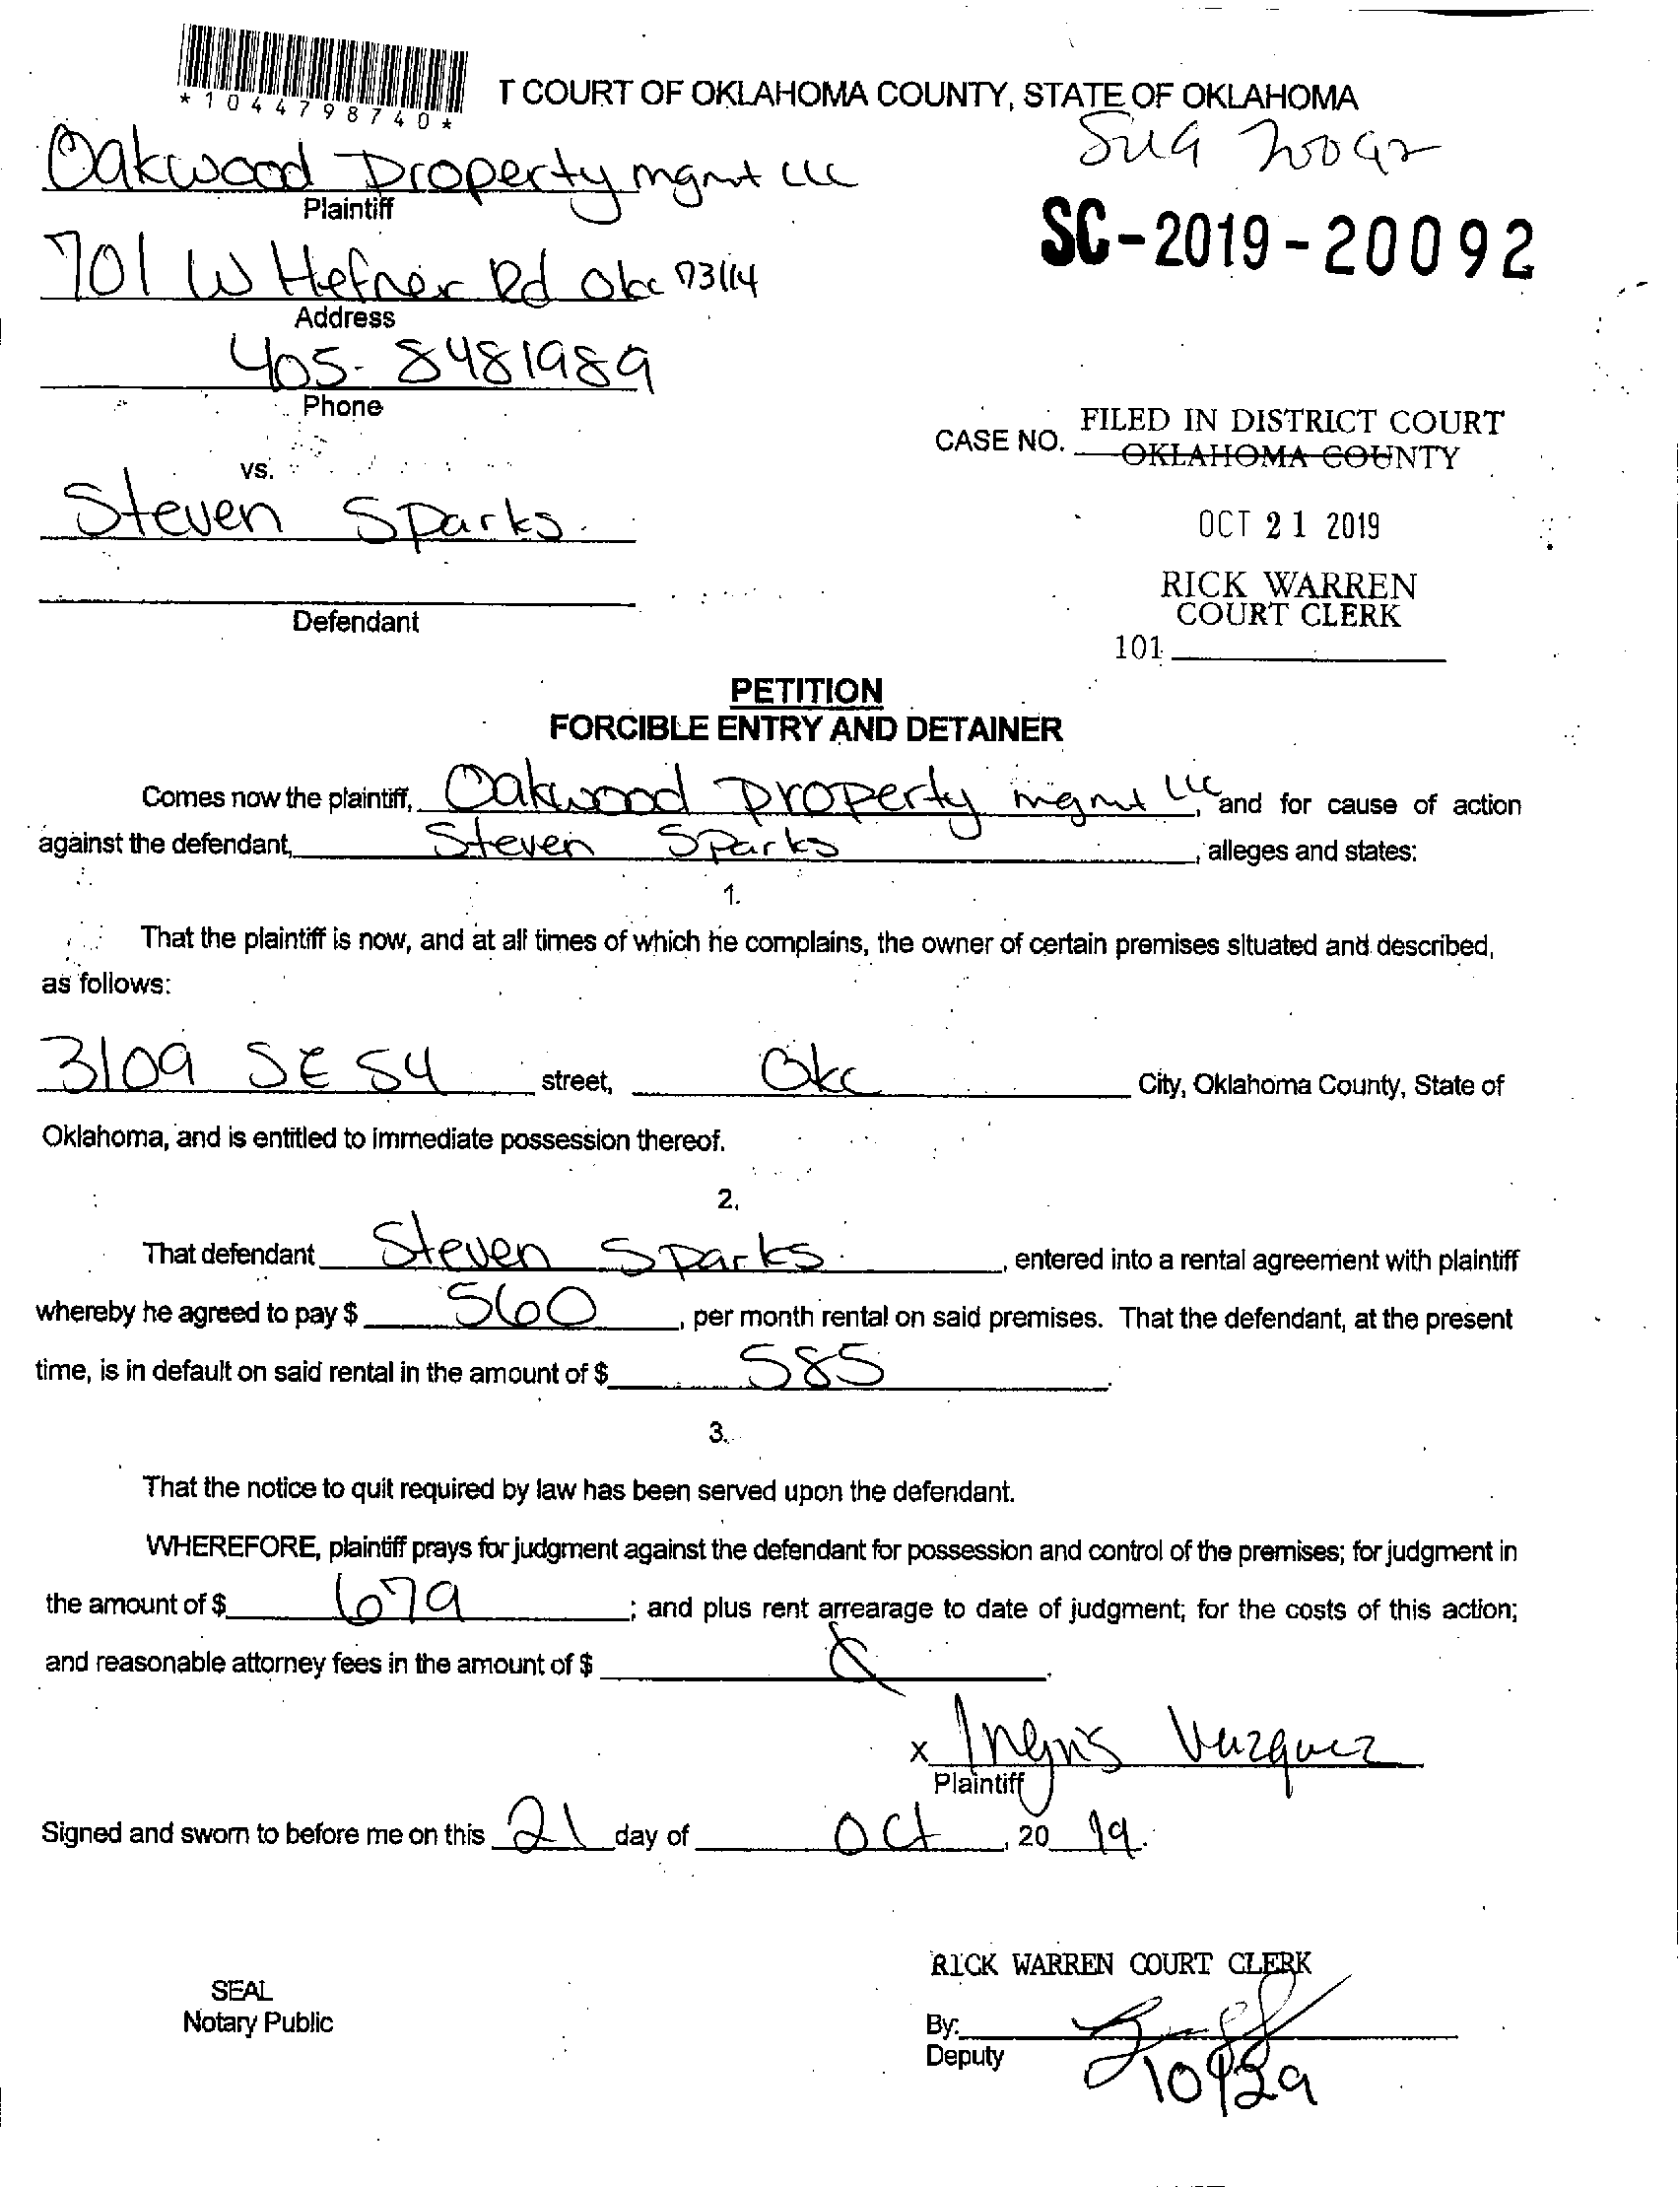 *1044798740*
T COURT OF OKLAHOMA COUNTY, STATE OF OKLAHOMA
Oakwood Property mgmt LLC
Plaintiff
SC-2019-20092
701 W Hefner Rd Okc 73114
Address
405-8481989
Phone
CASE NO. FILED IN DISTRICT COURT
OKLAHOMA COUNTY
vs.
Steven Sparks
OCT 21 2019
RICK WARREN
COURT CLERK
Defendant
101
PETITION
FORCIBLE ENTRY AND DETAINER
Comes now the plaintiff, Oakwood property mgmt LLC, and for cause of action
against the defendant, Steven Sparks, alleges and states:
1.
That the plaintiff is now, and at all times of which he complains, the owner of certain premises situated and described,
as follows:
3109 SE 54 street, Okc City, Oklahoma County, State of
Oklahoma, and is entitled to immediate possession thereof.
2.
That defendant Steven Sparks, entered into a rental agreement with plaintiff
whereby he agreed to pay $ 560, per month rental on said premises. That the defendant, at the present
time, is in default on said rental in the amount of $ 585.
3.
That the notice to quit required by law has been served upon the defendant.
WHEREFORE, plaintiff prays for judgment against the defendant for possession and control of the premises; for judgment in
the amount of $ 679; and plus rent arrearage to date of judgment; for the costs of this action;
and reasonable attorney fees in the amount of $
x Vazquez
Plaintiff
Signed and sworn to before me on this 21 day of Oct, 20 19.
RICK WARREN COURT CLERK
SEAL
Notary Public
By:
Deputy